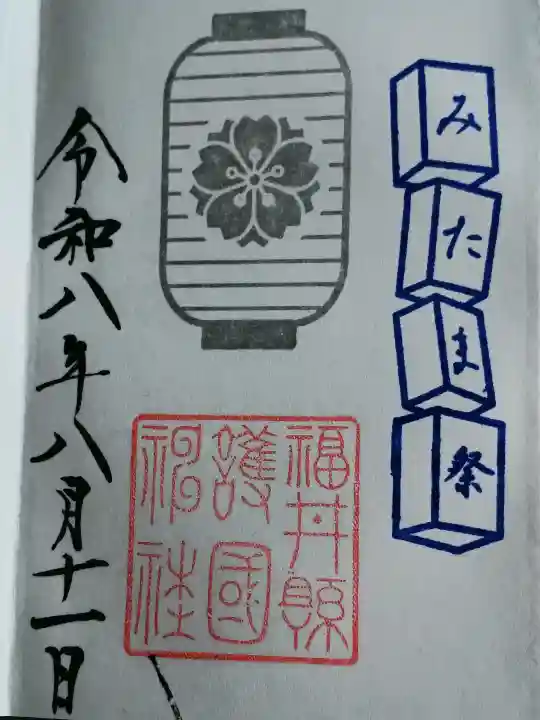 みたま祭
福井縣
護國
神社
令和八年八月十一日